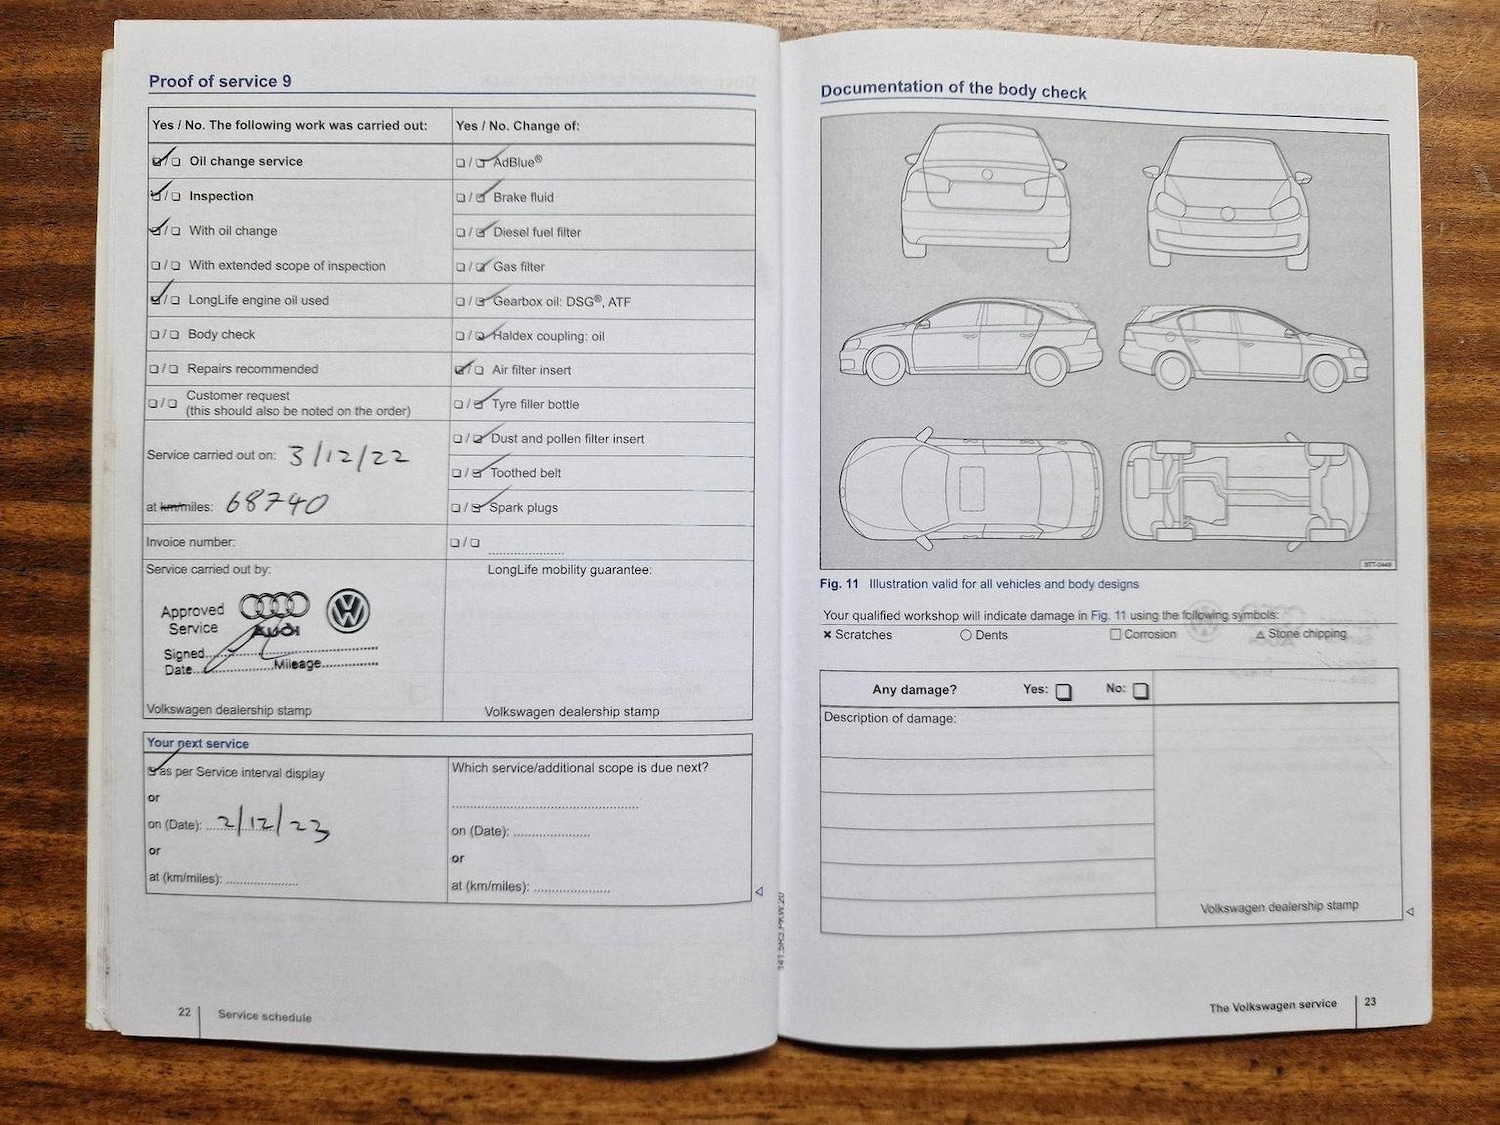 Proof of service 9
Yes / No. The following work was carried out:
☑/☐ Oil change service
☑/☐ Inspection
☑/☐ With oil change
☐/☐ With extended scope of inspection
☑/☐ LongLife engine oil used
☐/☐ Body check
☐/☐ Repairs recommended
☐/☐ Customer request
(this should also be noted on the order)
Service carried out on: 3/12/22
at km/miles: 68740
Invoice number:
Service carried out by:
Approved
Service
AUDI
Signed
Date Mileage
Volkswagen dealership stamp
Yes / No. Change of:
☐/☑ AdBlue®
☐/☑ Brake fluid
☐/☑ Diesel fuel filter
☐/☑ Gas filter
☐/☑ Gearbox oil: DSG®, ATF
☐/☑ Haldex coupling: oil
☑/☐ Air filter insert
☐/☑ Tyre filler bottle
☐/☑ Dust and pollen filter insert
☐/☑ Toothed belt
☐/☑ Spark plugs
☐/☐ ....................
LongLife mobility guarantee:
Volkswagen dealership stamp
Your next service
☑ as per Service interval display
or
on (Date): 2/12/23
or
at (km/miles): ....................
Which service/additional scope is due next?
on (Date): ....................
or
at (km/miles): ....................
22 Service schedule
141.5R3.PKW.20
Documentation of the body check
BTT-0449
Fig. 11 Illustration valid for all vehicles and body designs
Your qualified workshop will indicate damage in Fig. 11 using the following symbols:
× Scratches ○ Dents □ Corrosion △ Stone chipping
Any damage? Yes: ☐ No: ☐
Description of damage:
Volkswagen dealership stamp
The Volkswagen service 23